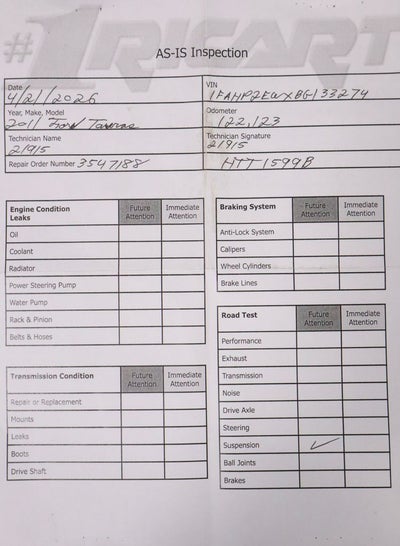 #1 RICART
AS-IS Inspection
Date 4/21/2026
VIN 1FAHP2EWXBG133274
Year, Make, Model 2011 Ford Taurus
Odometer 122,123
Technician Name 21915
Technician Signature 21915
Repair Order Number 3547188
HTT1599B
Engine Condition Future Immediate
Leaks Attention Attention
Oil
Coolant
Radiator
Power Steering Pump
Water Pump
Rack & Pinion
Belts & Hoses
Transmission Condition Future Immediate
Attention Attention
Repair or Replacement
Mounts
Leaks
Boots
Drive Shaft
Braking System Future Immediate
Attention Attention
Anti-Lock System
Calipers
Wheel Cylinders
Brake Lines
Road Test Future Immediate
Attention Attention
Performance
Exhaust
Transmission
Noise
Drive Axle
Steering
Suspension ✓
Ball Joints
Brakes